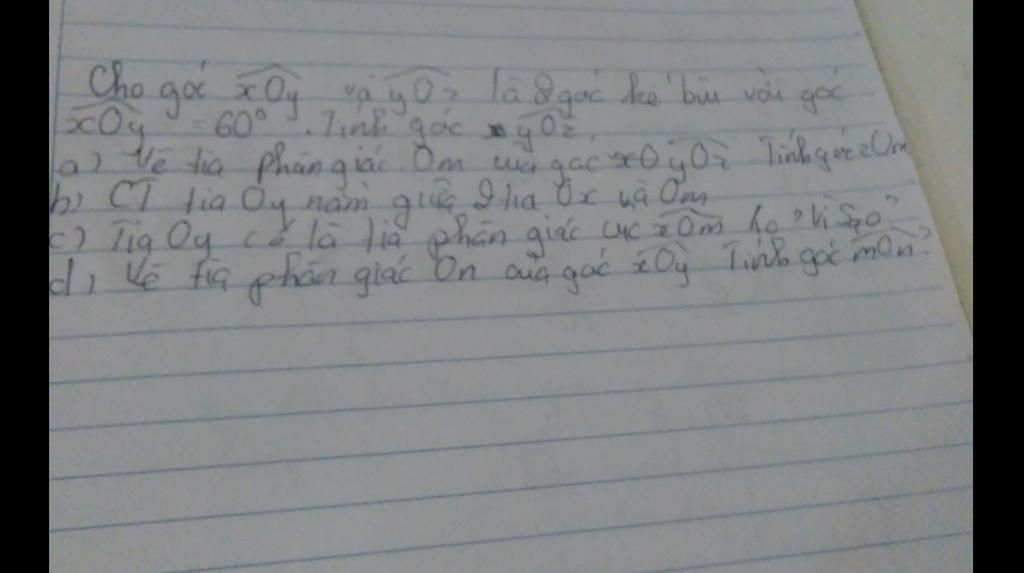 Cho góc xOy và yOz là 2 góc kề bùi với góc
xOy = 60°. Tính góc yOz
a) Vẽ tia phân giác Om của góc yOz Tính góc zOm
b) CT tia Oy nằm giữa 2 tia Ox và Om
c) Tia Oy có là tia phân giác của xOm ko? Vì sao?
d) Vẽ tia phân giác On của góc xOy Tính góc mOn?